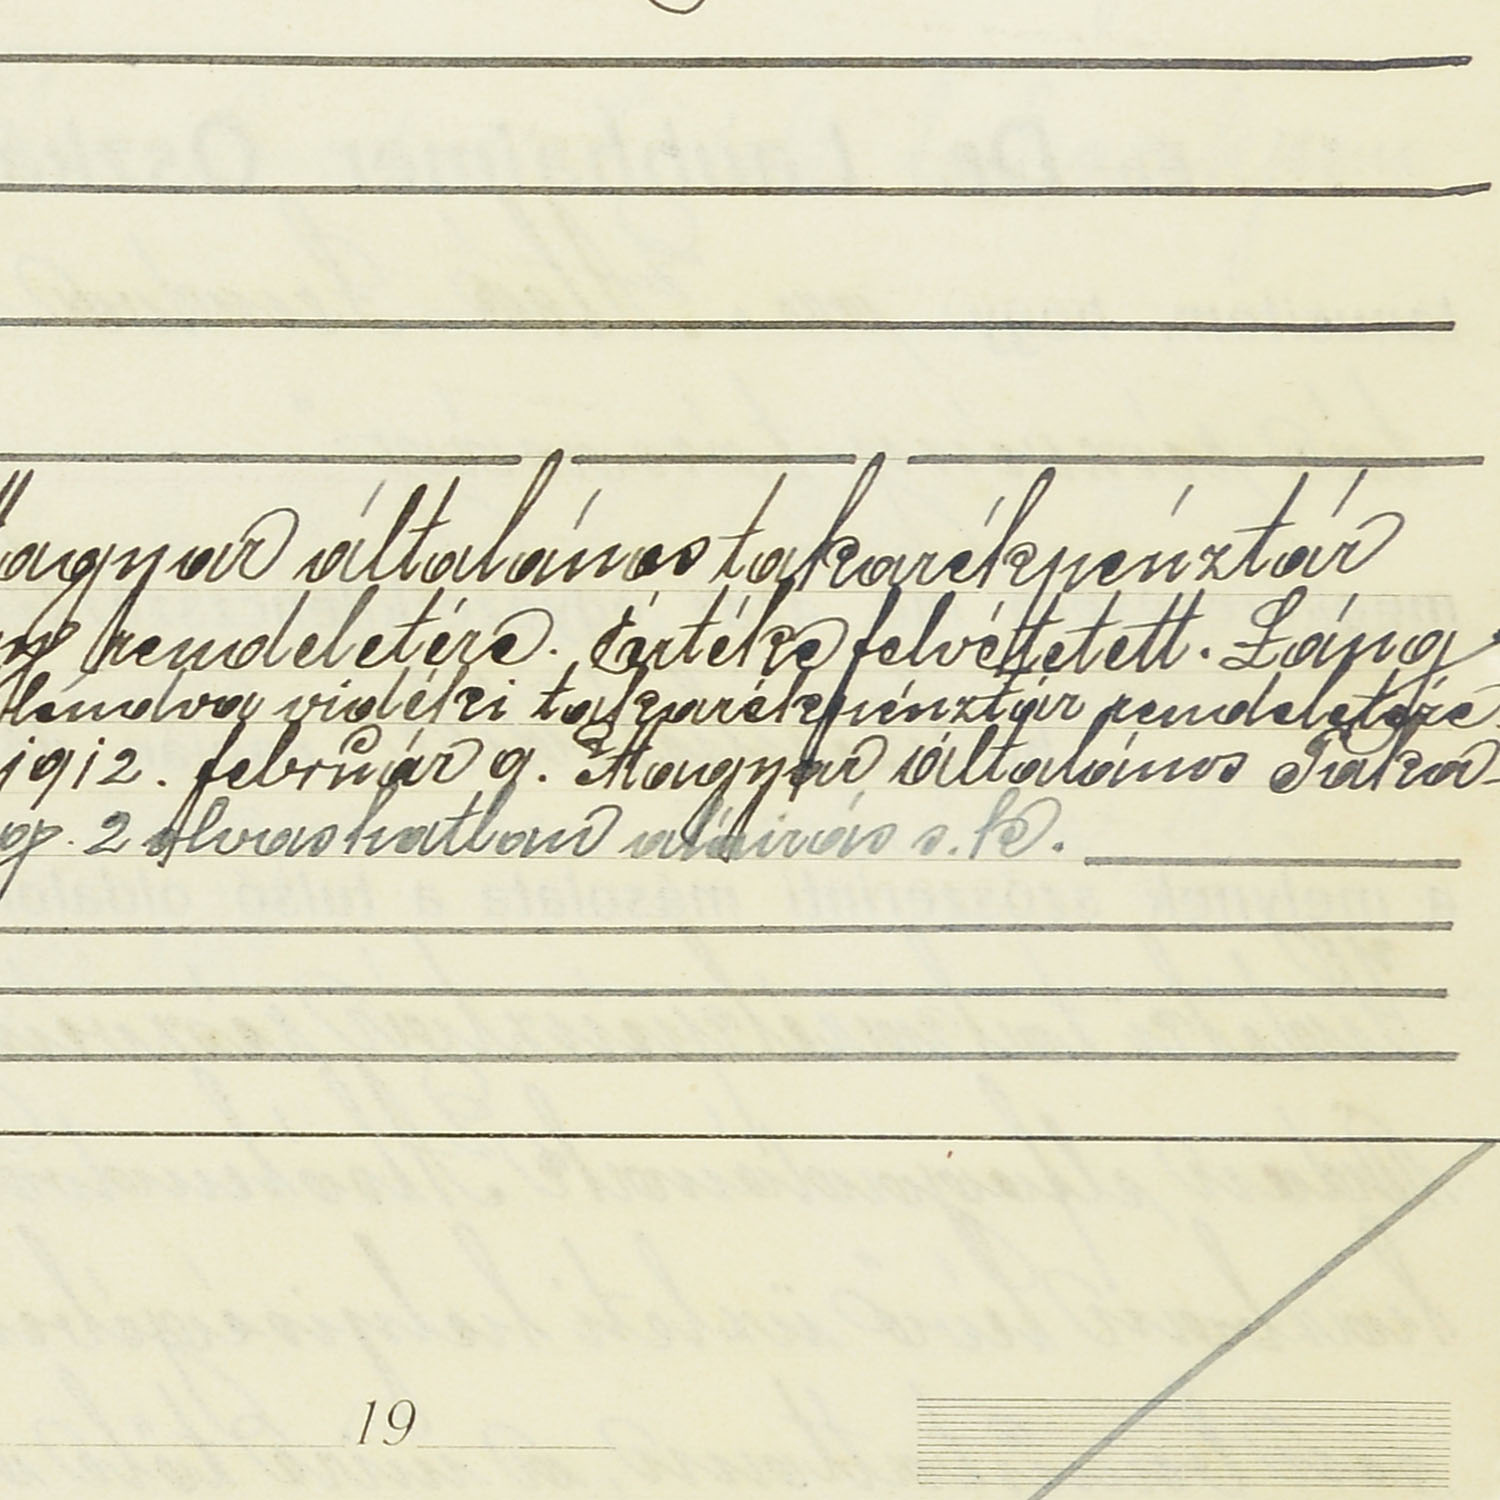 agyar általános takarékpénztár
rendeletére. Értéke felvétetett. Láng
lendva vidéki takarékpénztár rendeletére.
1912. február 9. Magyar általános Taka-
2 olvashatlan aláirás s. k.
19